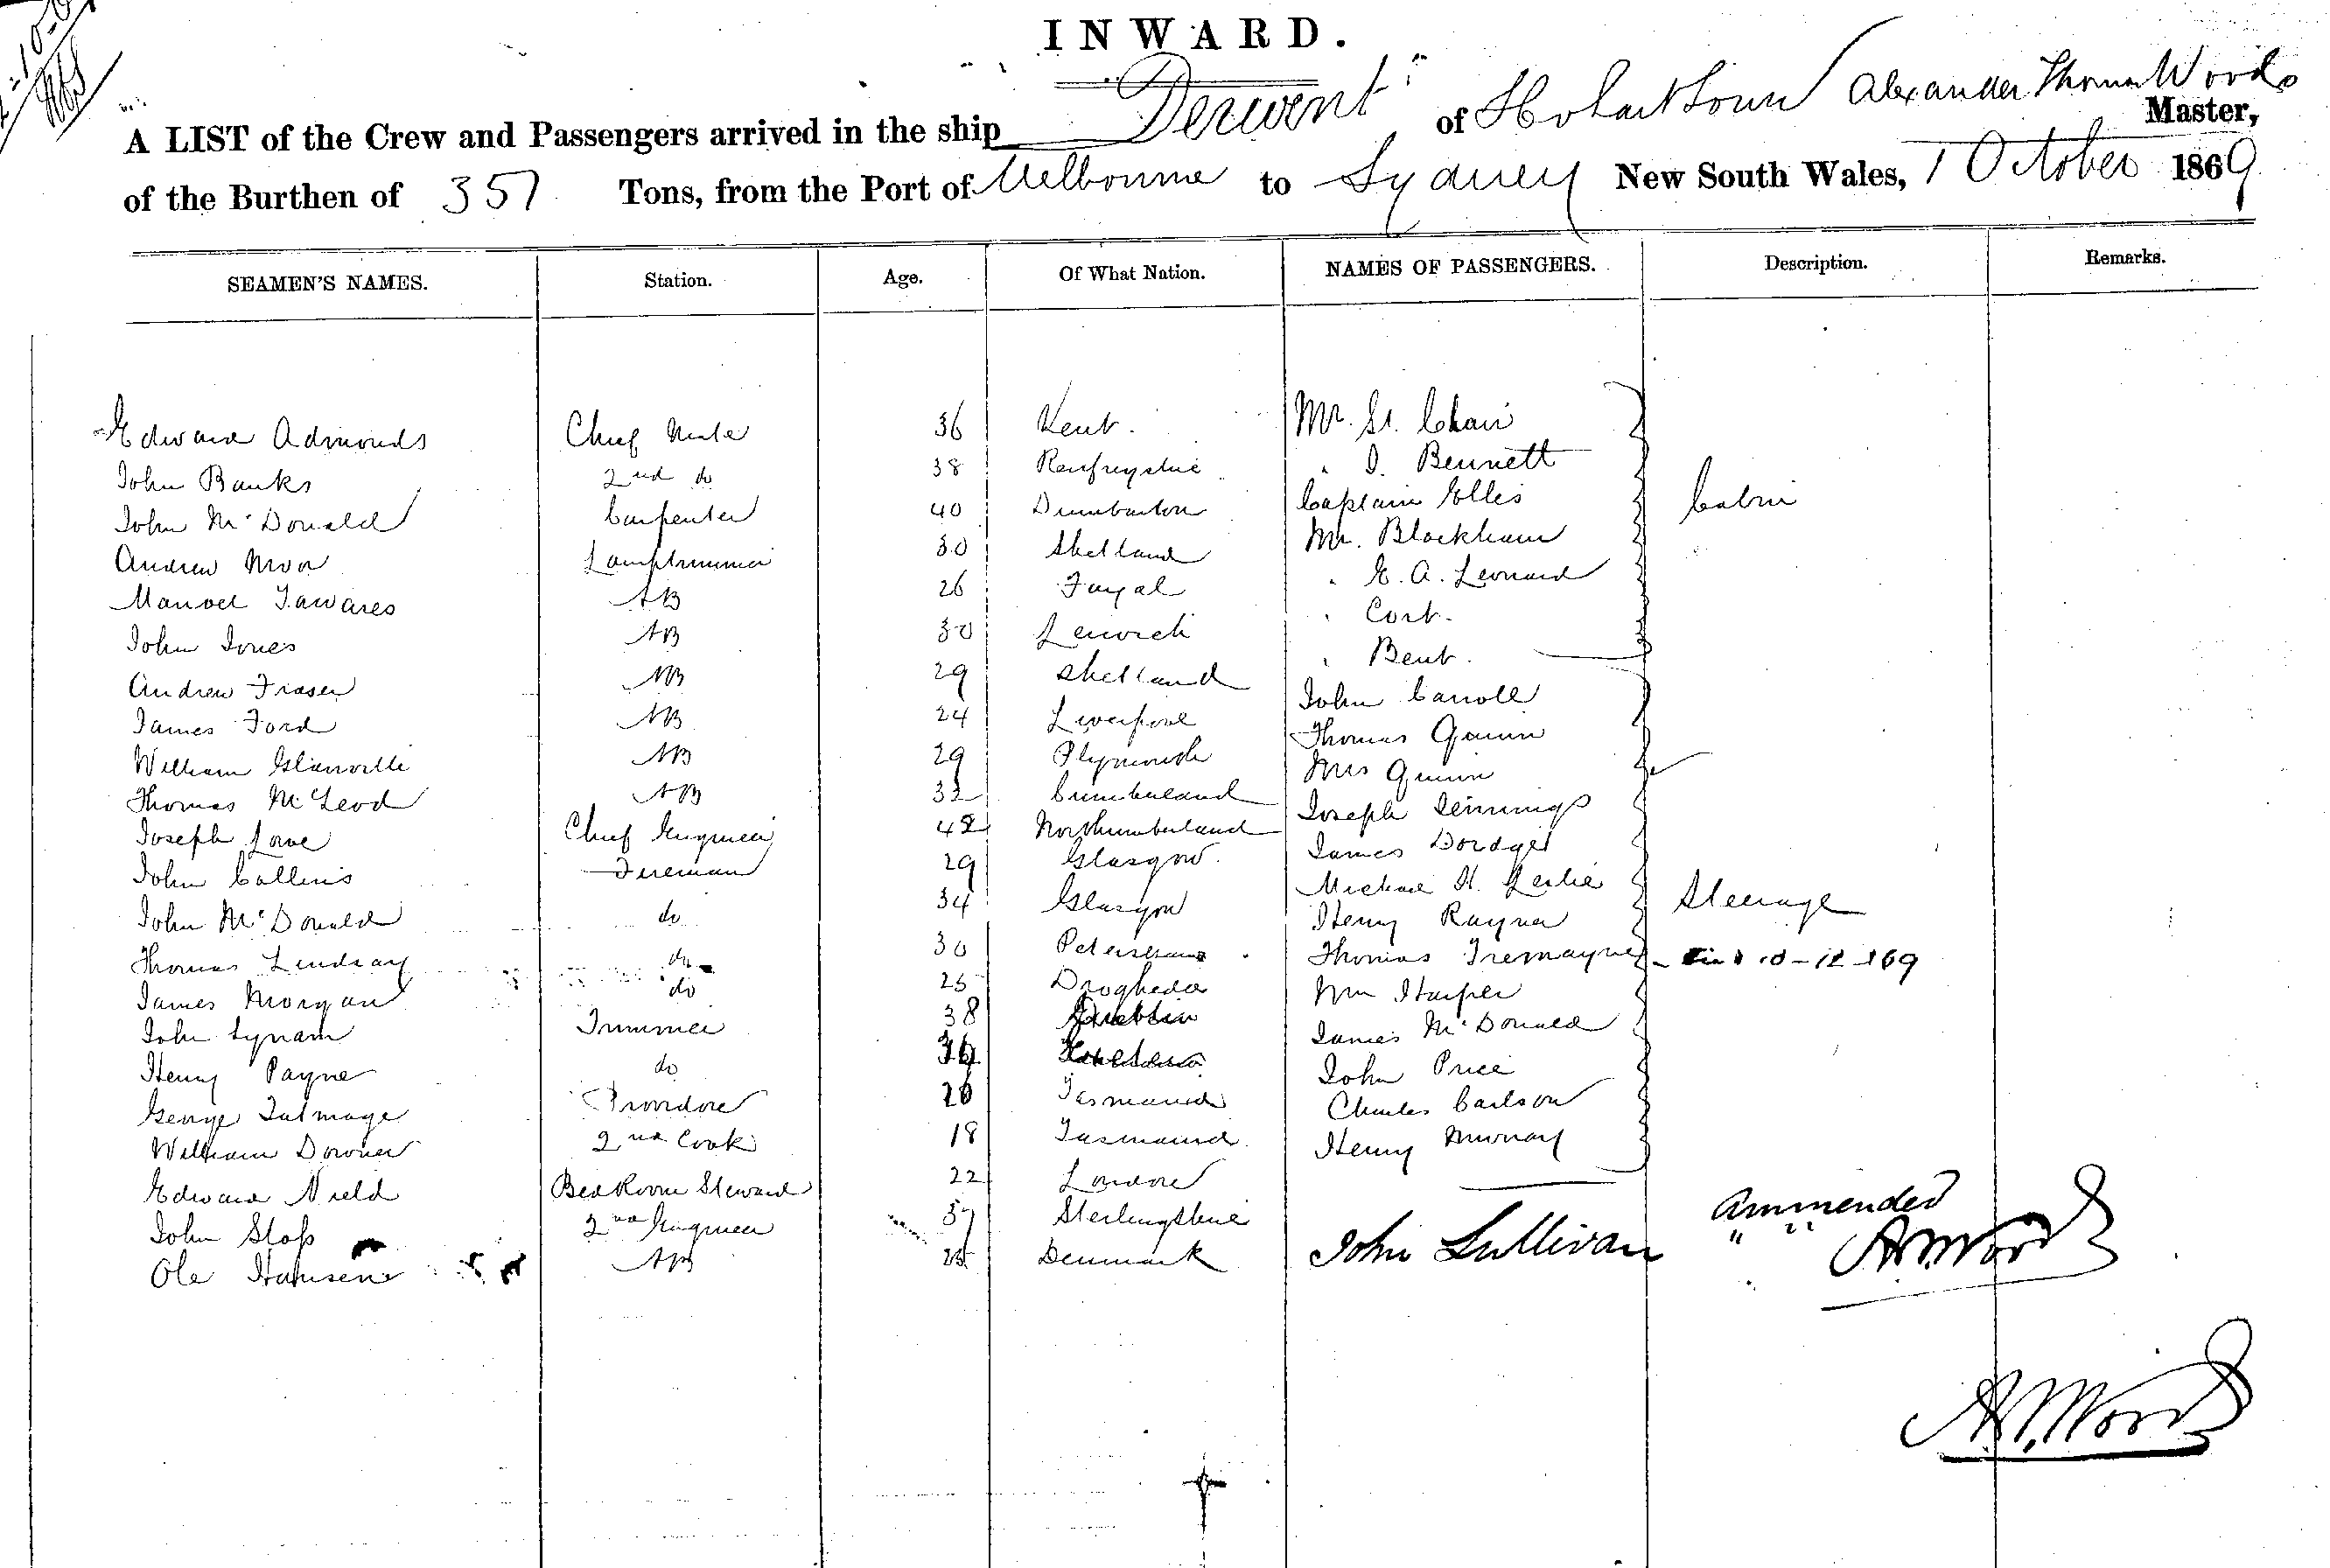 INWARD.
A LIST of the Crew and Passengers arrived in the ship "Derwent" of Hobart Town Alexander Thomas Woods Master,
of the Burthen of 357 Tons, from the Port of Melbourne to Sydney New South Wales, 1 October 1869
SEAMEN'S NAMES. Station. Age. Of What Nation. NAMES OF PASSENGERS. Description. Remarks.
Edward Admonds Chief Mate 36 Kent. Mr. St. Clair
John Banks 2nd do 38 Renfrewshire " J. Bennett
John McDonald Carpenter 40 Dumbarton Captain Elles Cabin
Andrew Moor Lamptrimmer 30 Shetland Mr. Blackham
Manoel Tavares AB 26 Fayal " E. A. Leonard
John Jones AB 30 Lerwick " Cort.
Andrew Fraser AB 29 Shetland " Bent.
James Ford AB 24 Liverpool John Carroll
William Glanville AB 29 Plymouth Thomas Quinn
Thomas McLeod AB 32 Cumberland Mrs Quinn
Joseph Love Chief Engineer 42 Northumberland Joseph Jennings
John Collins Fireman 29 Glasgow. James
John McDonald do 34 Glasgow Michael H. Leslie Steerage
Thomas Lindsay do 30 Henry Rayner
James Morgan do 25 Drogheda Thomas Tremayne
John Lynam Trimmer 38 Dublin Wm Harper
Henry Payne do 36 James McDonald
George Talmage Providore 26 Tasmania John Price
William Downer 2nd Cook 18 Tasmania Charles Carlson
Edward Nield Bed Room Steward 22 London Henry Murray
John Sloss 2nd Engineer 37 Sterlingshire Ammended
Ole Hansen AB 25 Denmark John Sullivan " " A.T. Woods
A.T. Woods